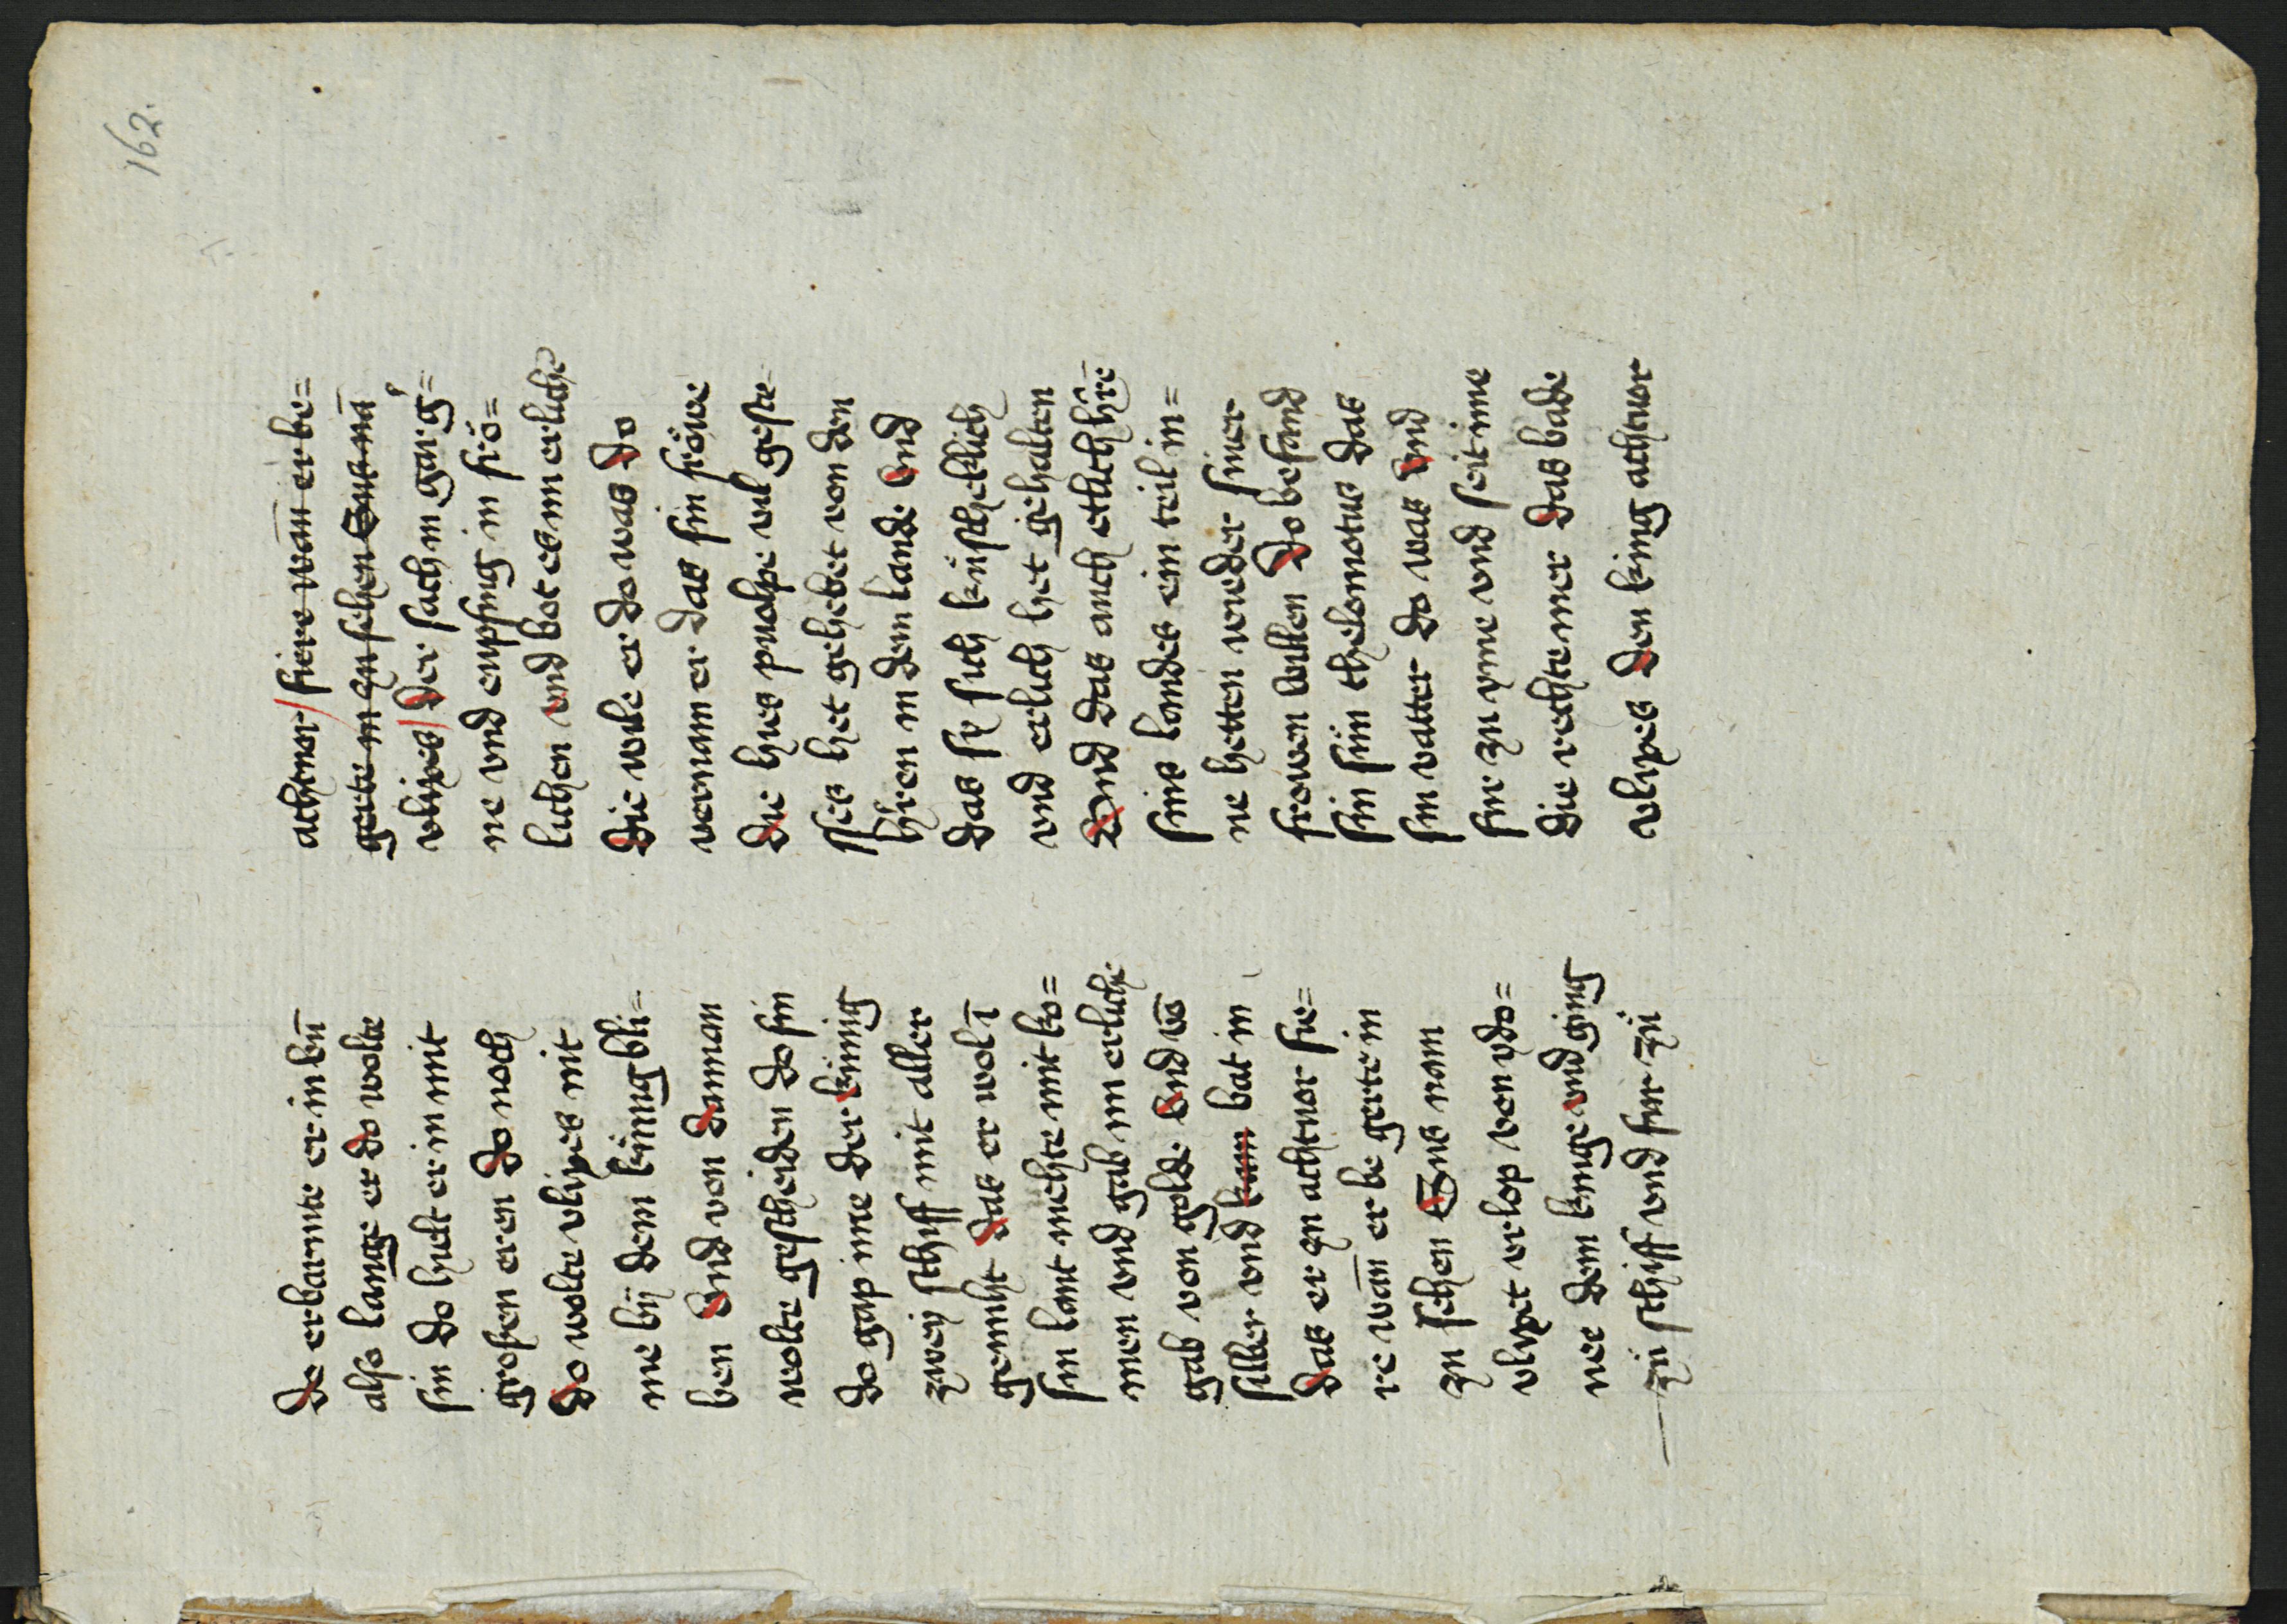 162.
do erbarmte er in bū
also lange er do wolte
sin do hielt er in mit
grosen eren do noch
do wolte vlixes nit
me bÿ dem kűnnig bli=
ben vnd von dannan
wolte gescheiden do sin
do gap ime der kúnnig
zweÿ schiff mit aller
gemcht das er wol ī
sin lant mechte mit ko=
men vnd gab im erliche
gab von golde vnd vō
silber vnd kam bat in
das er zu achtmor fie=
re wān er be gerte in
zu sehen Sus nam
vlixet vrlop von ydo=
nee dem kinge vnd ging
zű schiff vnd fur zű
achtmor / fiere wān er be=
gerte in zu sehen Sus nā
vlixes / der sach in gar g'=
ne vnd enpfing in frö=
lichen vnd bot es im erliche
Die wile er do was do
vernam er das sin fröwe
die hies pnolpe vil geste=
sses het gehebet von den
h'ren in dem lande vnd
das sÿ sich kűscheklich
vnd erlich het gehalten
Vnd das auch etlich h'rē
sins landes ein teil in=
ne hetten wieder siner
frowen willen Do befand
sin sűn thelomotus das
sin vatter do was vnd
fur zu yme vnd seit ime
die rechte mer das bade
vlixes den king achtmor